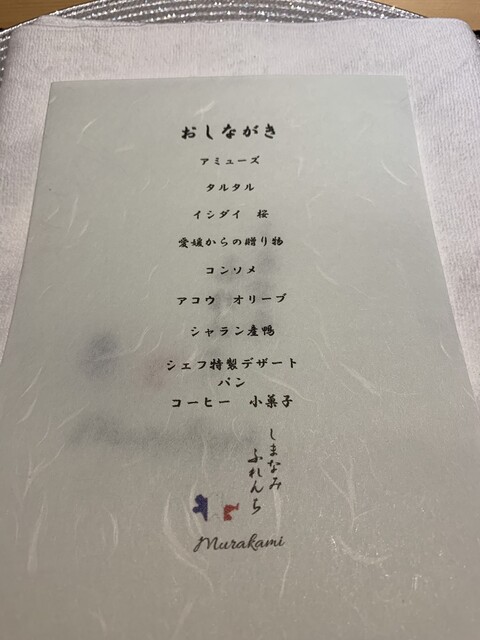 おしながき
アミューズ
タルタル
イシダイ　桜
愛媛からの贈り物
コンソメ
アコウ　オリーブ
シャラン産鴨
シェフ特製デザート
パン
コーヒー　小菓子
しまなみ
ふれんち
Murakami